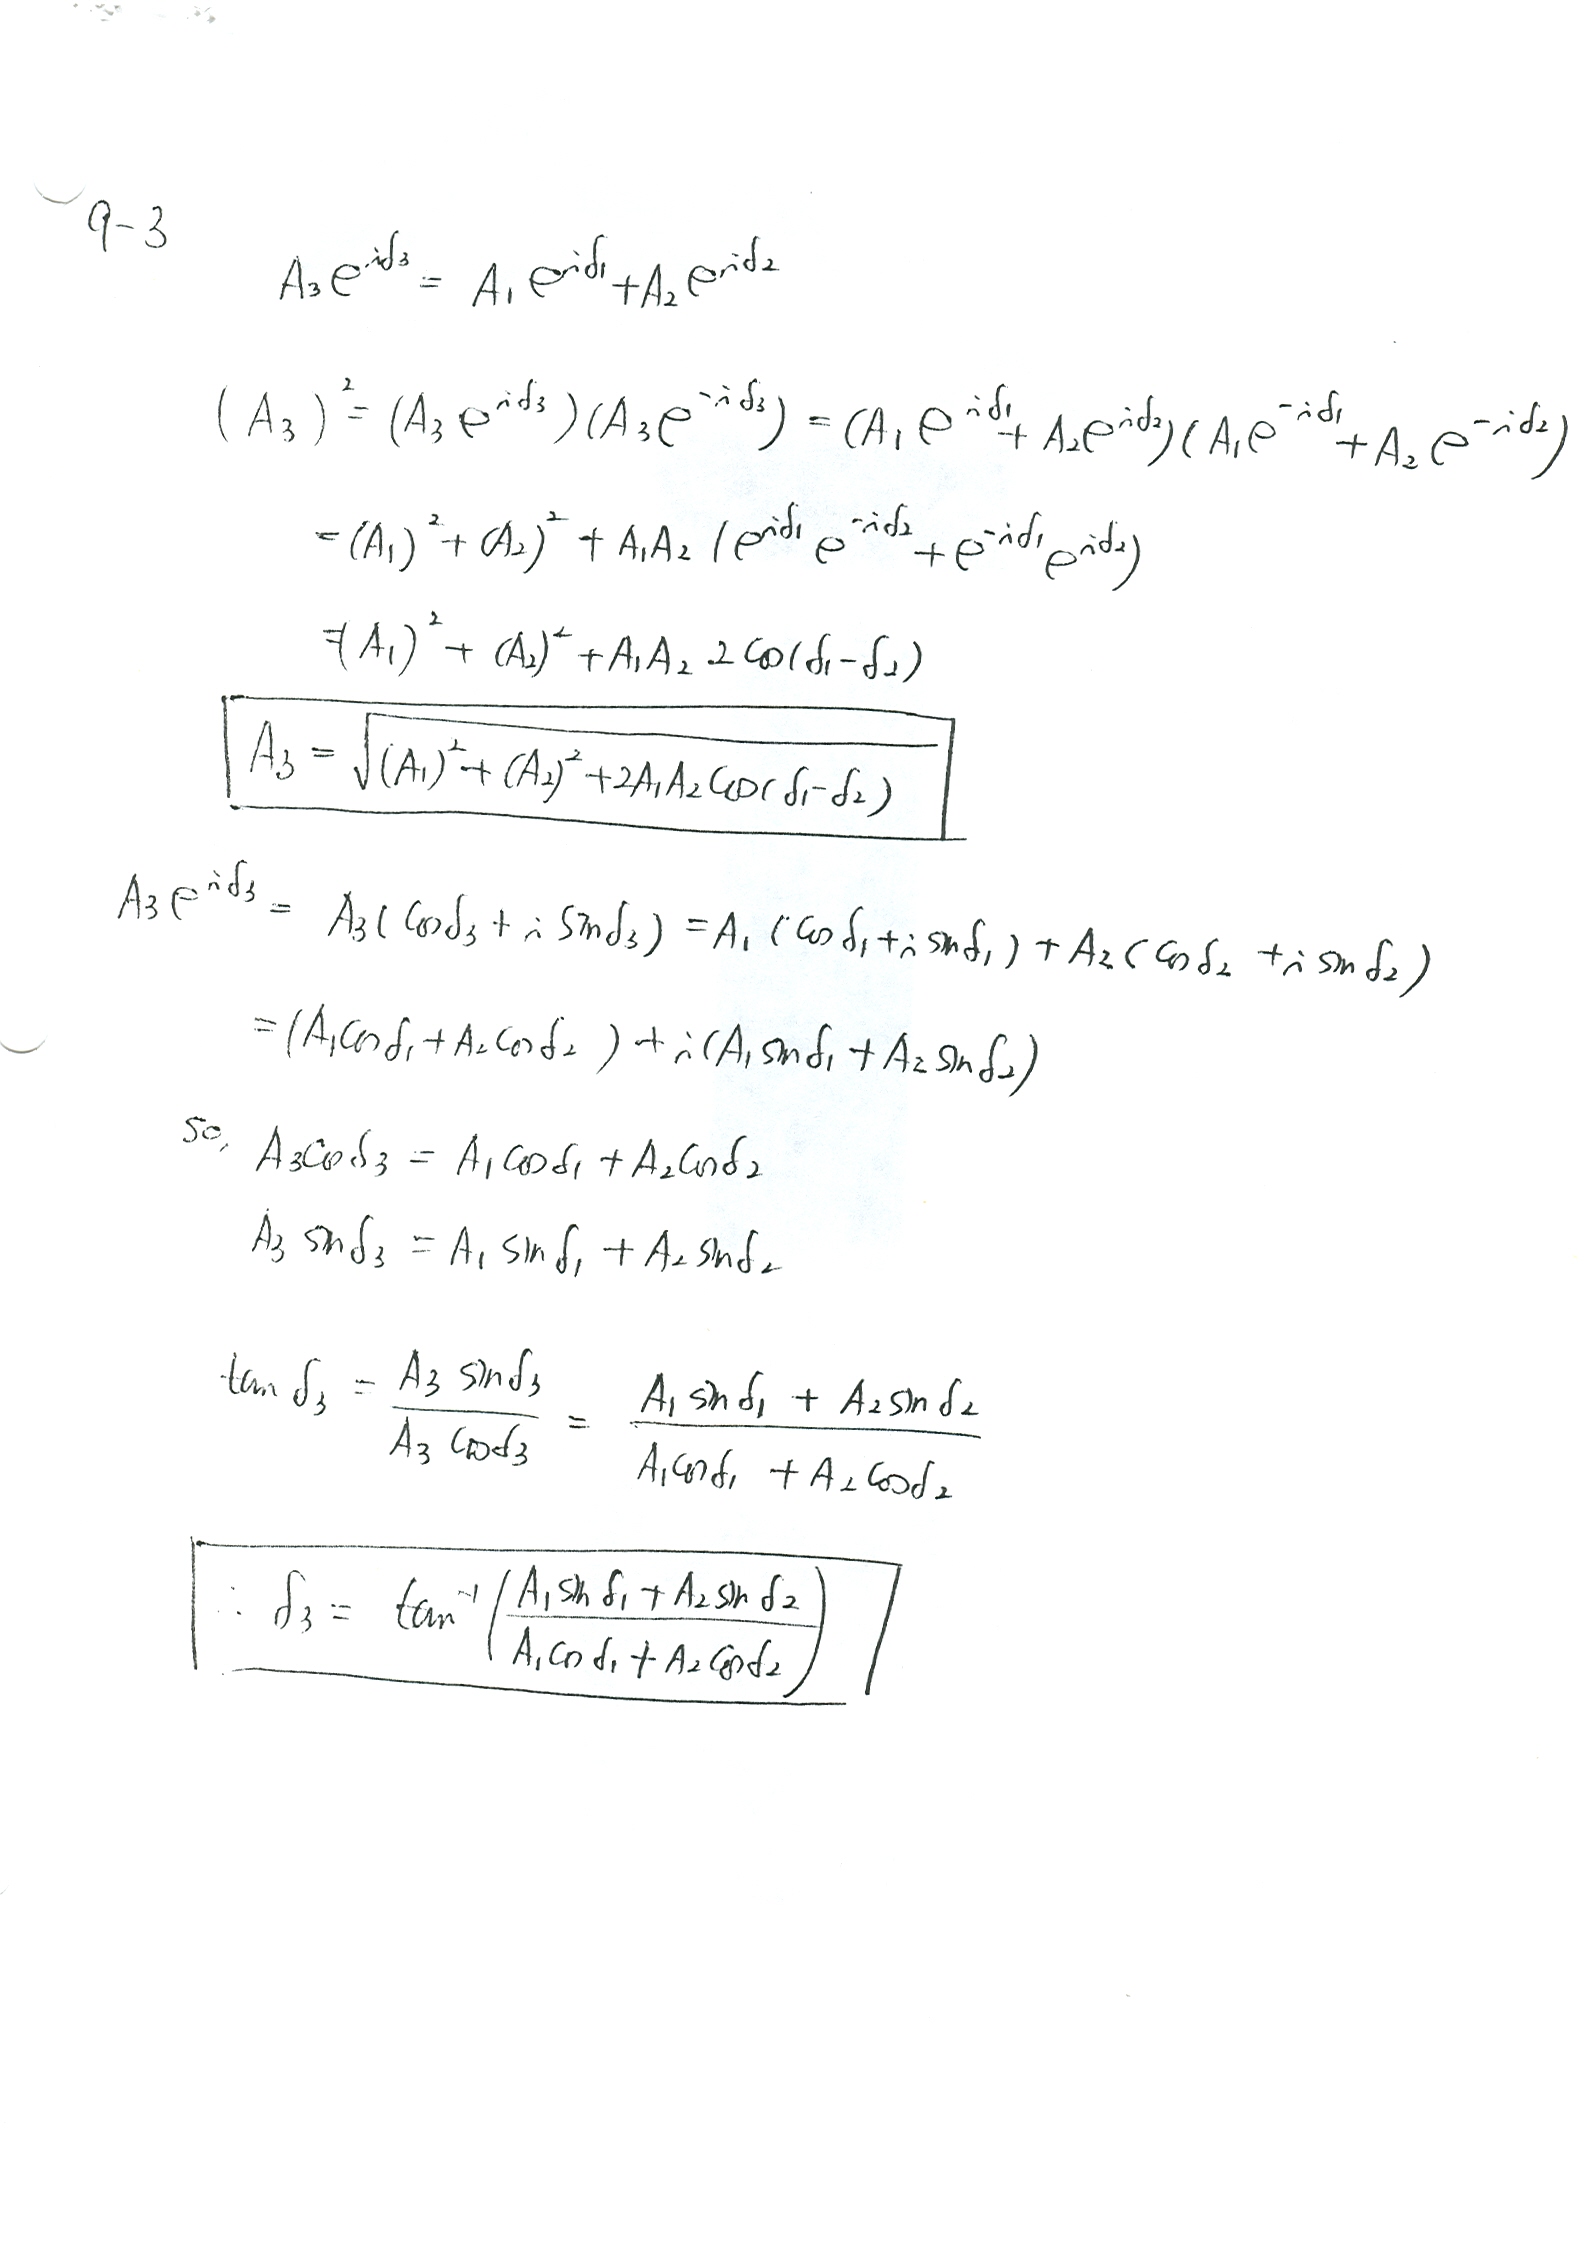 9-3
A₃e^{iδ₃} = A₁e^{iδ₁} + A₂e^{iδ₂}
(A₃)² = (A₃e^{iδ₃})(A₃e^{-iδ₃}) = (A₁e^{iδ₁} + A₂e^{iδ₂})(A₁e^{-iδ₁} + A₂e^{-iδ₂})
= (A₁)² + (A₂)² + A₁A₂(e^{iδ₁}e^{-iδ₂} + e^{-iδ₁}e^{iδ₂})
= (A₁)² + (A₂)² + A₁A₂ 2cos(δ₁-δ₂)
A₃ = √((A₁)² + (A₂)² + 2A₁A₂cos(δ₁-δ₂))
A₃e^{iδ₃} = A₃(cosδ₃ + i sinδ₃) = A₁(cosδ₁ + i sinδ₁) + A₂(cosδ₂ + i sinδ₂)
= (A₁cosδ₁ + A₂cosδ₂) + i(A₁sinδ₁ + A₂sinδ₂)
so, A₃cosδ₃ = A₁cosδ₁ + A₂cosδ₂
A₃ sinδ₃ = A₁ sinδ₁ + A₂ sinδ₂
tan δ₃ = (A₃ sinδ₃)/(A₃ cosδ₃) = (A₁ sinδ₁ + A₂ sinδ₂)/(A₁cosδ₁ + A₂cosδ₂)
∴ δ₃ = tan⁻¹((A₁sinδ₁ + A₂sinδ₂)/(A₁cosδ₁ + A₂cosδ₂))